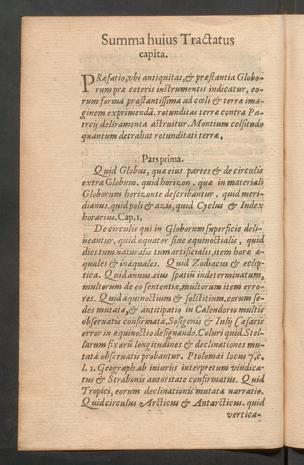 Summa huius Tractatus
capita.
PRæfatio, vbi antiquitas, & præstantia Globo-
rum præ ceteris instrumentis indicatur, eo-
rum forma præstantissima ad cœli & terræ ima-
ginem exprimendā. rotunditas terræ contra Pa-
tricij deliramenta astruitur. Montium celsitudo
quantum detrahat rotunditati terræ.
Pars prima.
Quid Globus, quæ eius partes & de circulis
extra Globum. quid horizon, quæ in materiali
Globorum horizonte describantur, quid meri-
dianus. quid poli & axis, quid Cyclus & Index
horarius. Cap. 1.
De circulis qui in Globorum superficie deli-
neantur, quid æquator siue æquinoctialis, quid
dies tum naturalis tum artificialis, item horæ æ-
quales & inæquales. Quid Zodiacus & eclip-
tica. Quid annus. eius spatiū indeterminatum,
multorum de eo sententiæ, multorum item erro-
res. Quid æquinoctium & solstitium, eorum se-
des mutata, & antitipatio in Calendorio multis
obseruatis confirmata. Sosigenis & Iulij Cæsaris
error in æquinoctijs designando. Coluri quid. Stel-
larum fixarū longitudines & declinationes mu-
tatæ obseruatis probantur. Ptolomæi locus 7. c.
l. 1. Geograph. ab iniurijs interpretum vindica-
tus & Strabonis autoritate confirmatus. Quid
Tropici, eorum declinationis mutatæ narratio.
Quid circulus Arcticus & Antarcticus. quid
vertica-